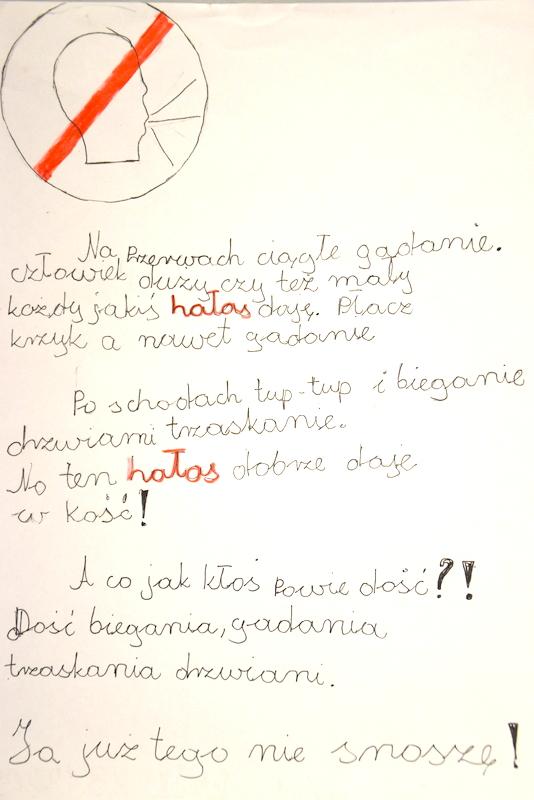 Na przerwach ciągłe gadanie.
człowiek duży czy też mały
każdy jakiś hałas daję. Płacz
krzyk a nawet gadanie
Po schodach tup-tup i bieganie
drzwiami trzaskanie.
No ten hałas dobrze daje
w kość!
A co jak ktoś powie dość?!
Dość biegania, gadania
trzaskania drzwiami.
Ja już tego nie snoszę!